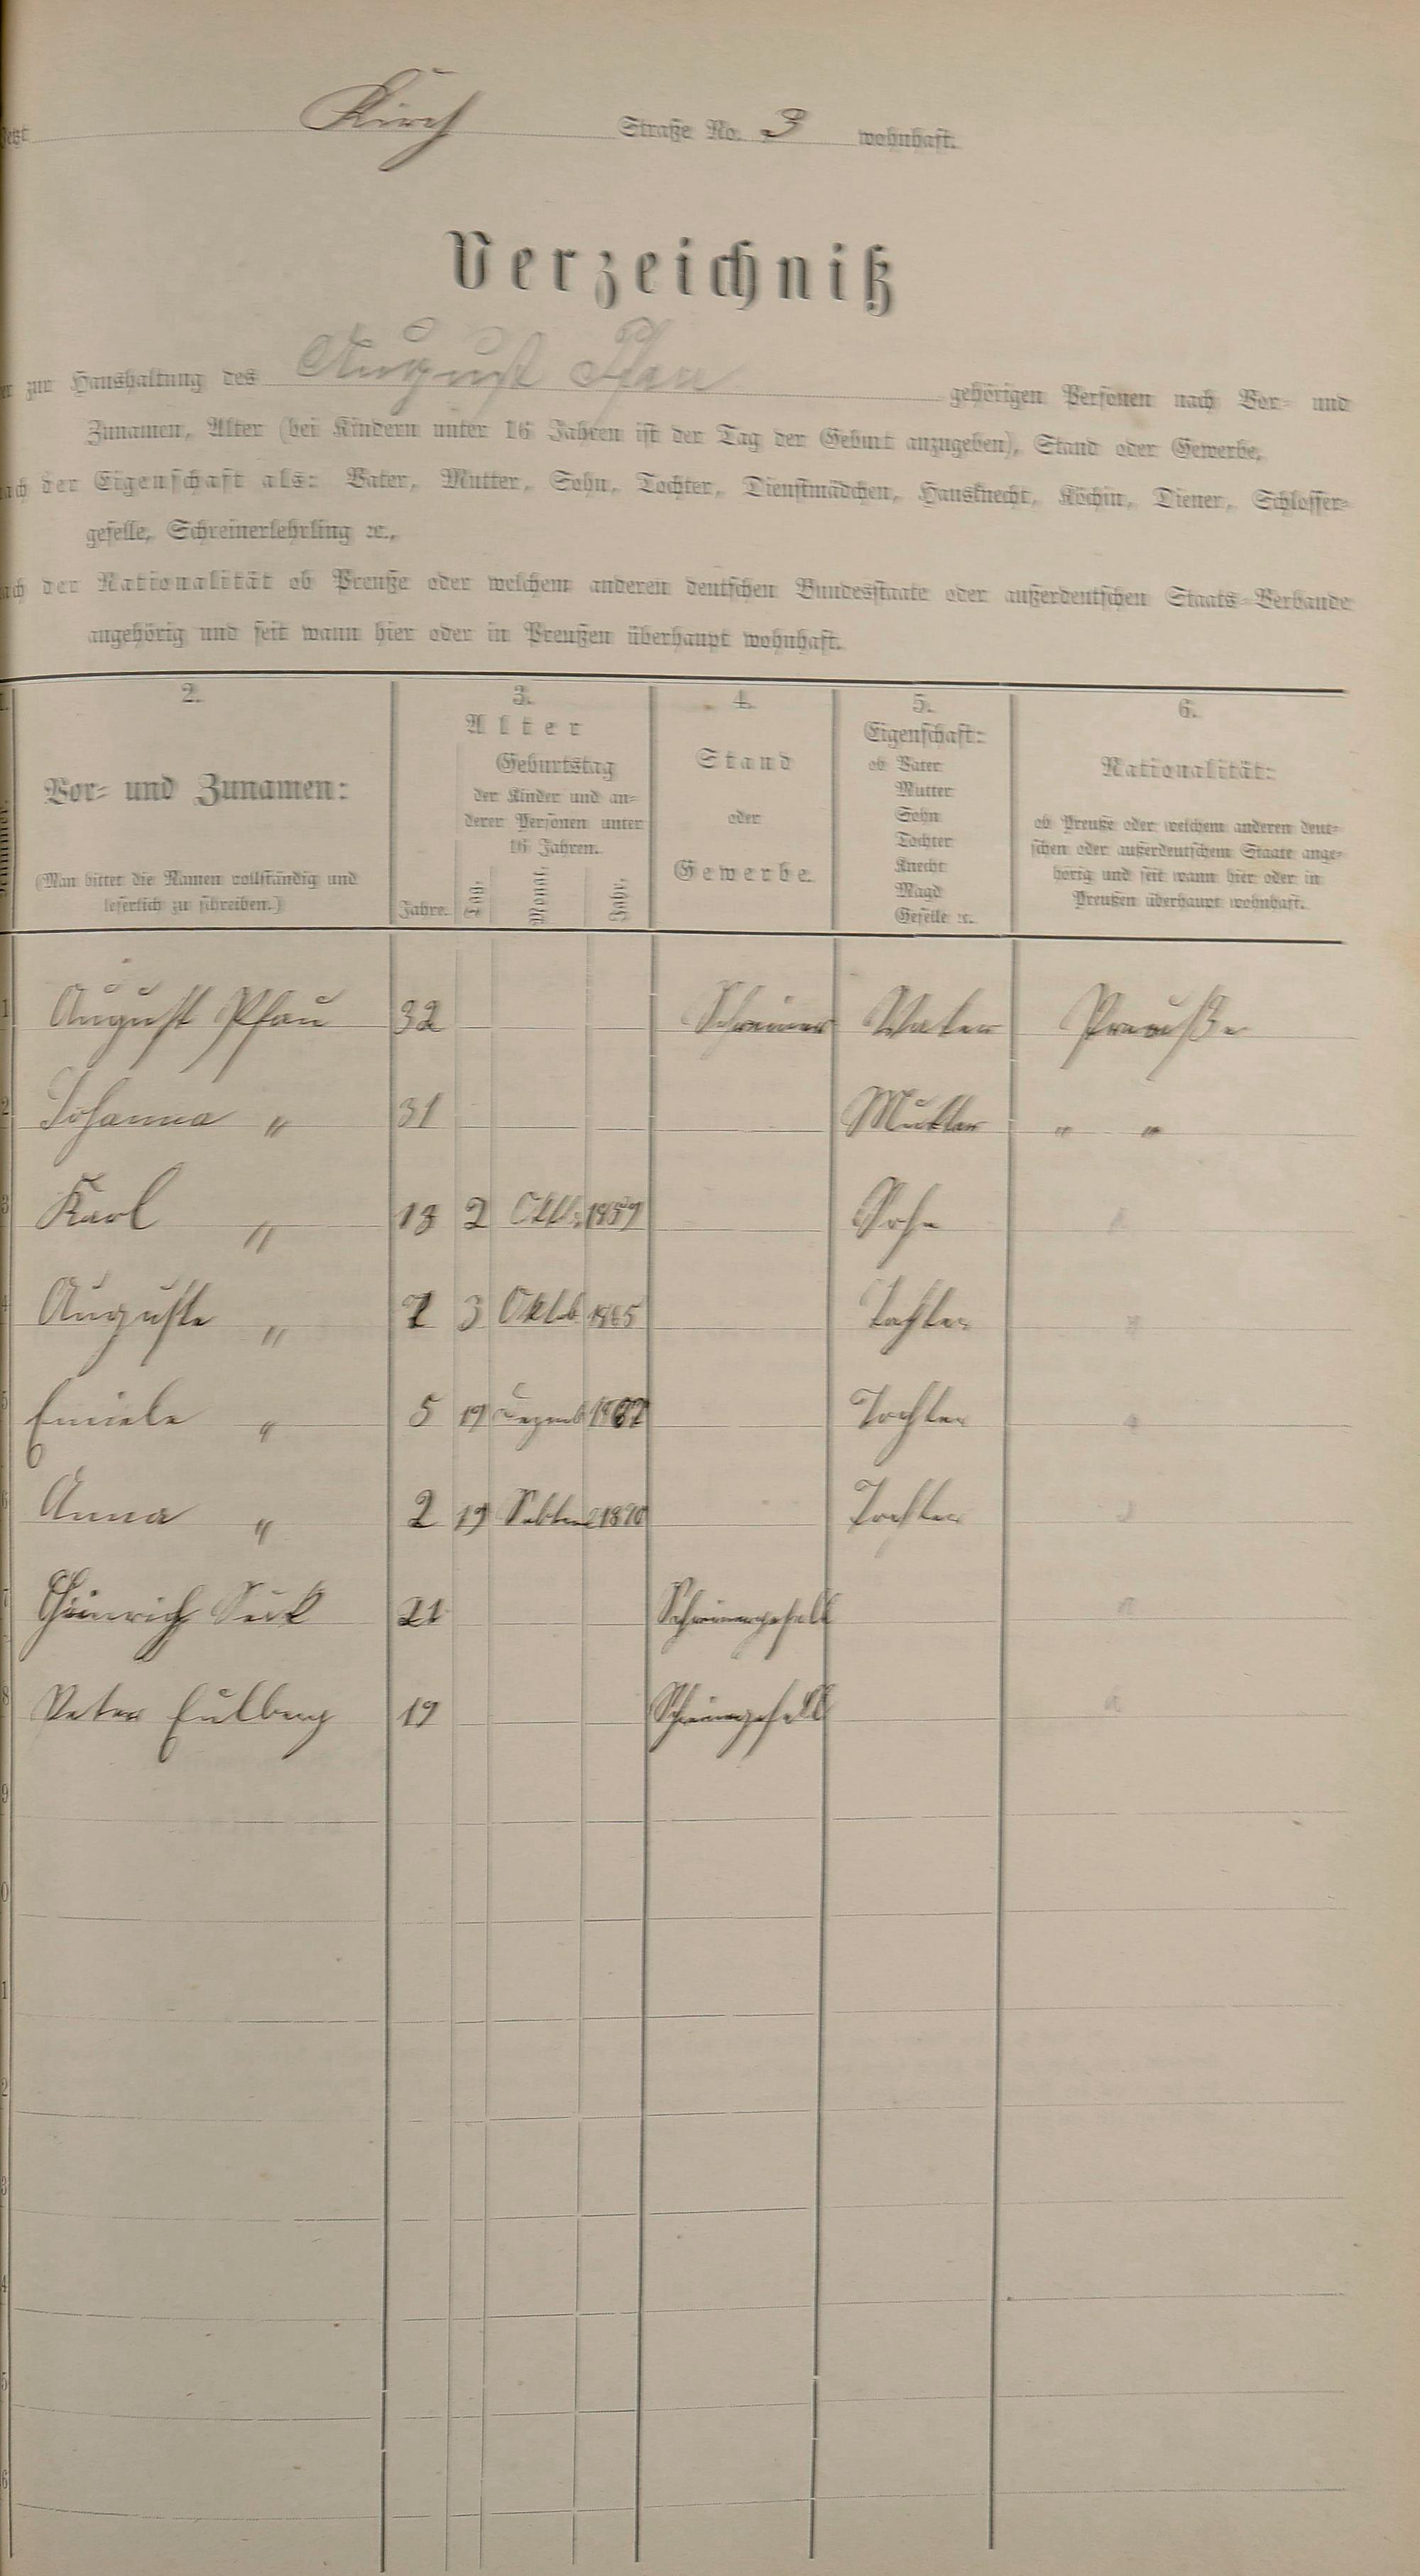 Jetzt Kirch Straße No. 3 wohnhaft.
Verzeichniß
er zur Haushaltung des August Pfau gehörigen Personen nach Vor- und
Zunamen, Alter (bei Kindern unter 16 Jahren ist der Tag der Geburt anzugeben), Stand oder Gewerbe,
nach der Eigenschaft als: Vater, Mutter, Sohn, Tochter, Dienstmädchen, Hausknecht, Köchin, Diener, Schlosser-
geselle, Schreinerlehrling ꝛc.,
nach der Nationalität ob Preuße oder welchem anderen deutschen Bundesstaate oder außerdeutschen Staats-Verbande
angehörig und seit wann hier oder in Preußen überhaupt wohnhaft.
2. 3. 4. 5. 6.
Vor- und Zunamen:
(Man bittet die Namen vollständig und
leserlich zu schreiben.)
Alter
Geburtstag
der Kinder und an-
derer Personen unter
16 Jahren.
Jahre. Tag. Monat. Jahr.
Stand
oder
Gewerbe.
Eigenschaft:
ob Vater
Mutter
Sohn
Tochter
Knecht
Magd
Geselle ꝛc.
Nationalität:
ob Preuße oder welchem anderen deut-
schen oder außerdeutschem Staate ange-
hörig und seit wann hier oder in
Preußen überhaupt wohnhaft.
1 August Pfau 32 Schreiner Vater Preuße
2 Johanna " 31 Mutter " "
3 Karl " 13 2 Oktb. 1859 Sohn "
4 Auguste " 7 3 Oktb 1865 Tochter "
5 Emiele " 5 19 Dezemb 1867 Tochter "
6 Anna " 2 19 Sebtem 1870 Tochter "
7 Heinrich Seck 21 Schreinergesell "
8 Peter Eulberg 19 Schreinergesell "
9
0
1
2
3
4
5
6